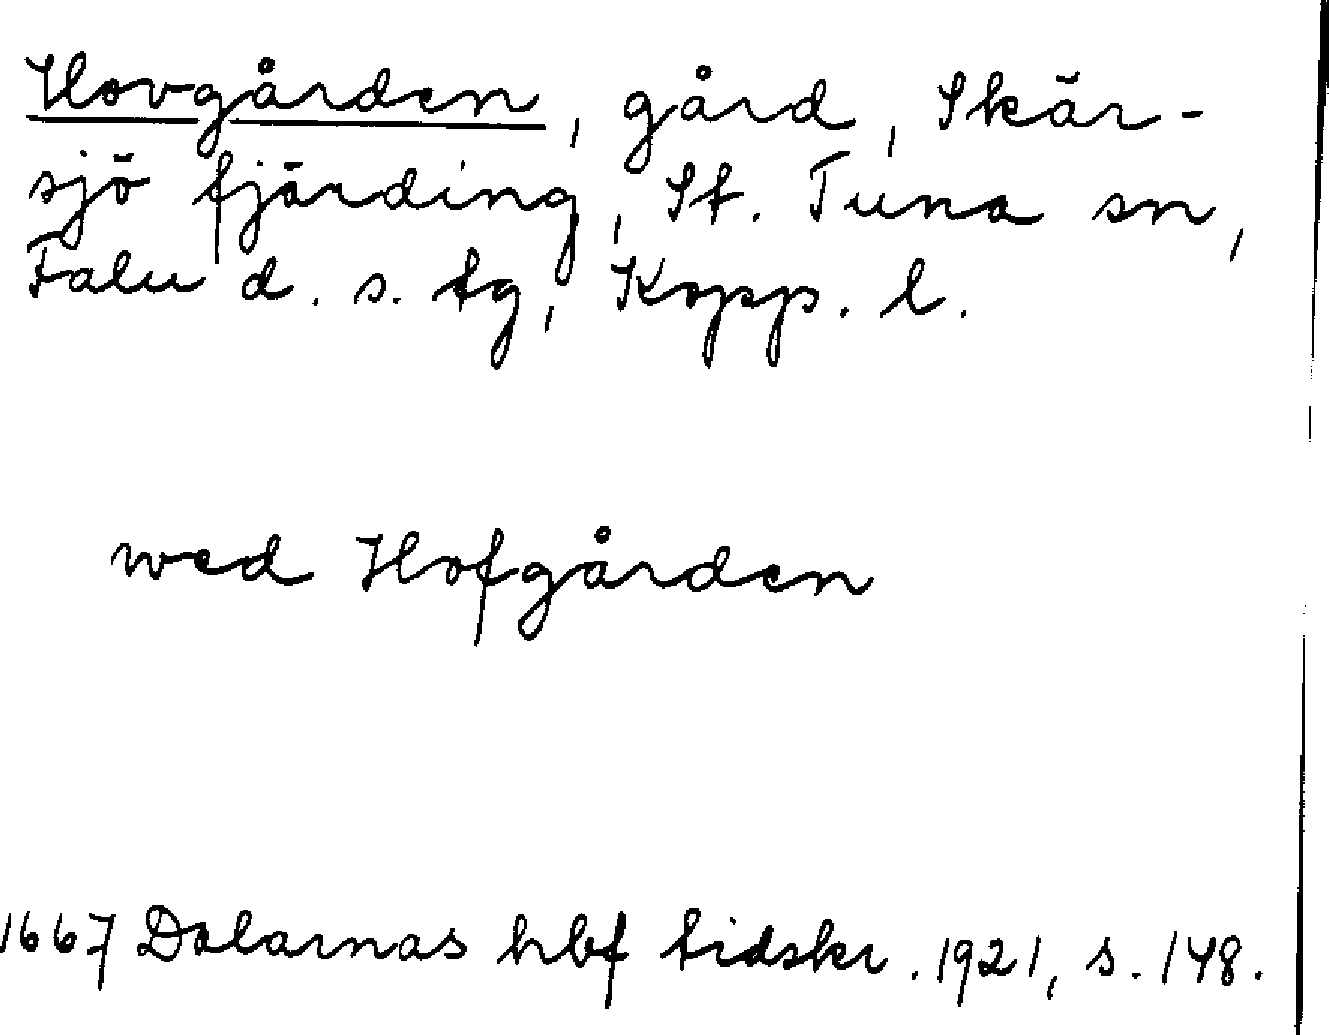 Hovgården, gård, Skär-
sjö fjärding, St. Tuna sn,
Falu d. s. tg, Kopp. l.
wed Hofgården
1667 Dalarnas hbf tidskr. 1921, s. 148.